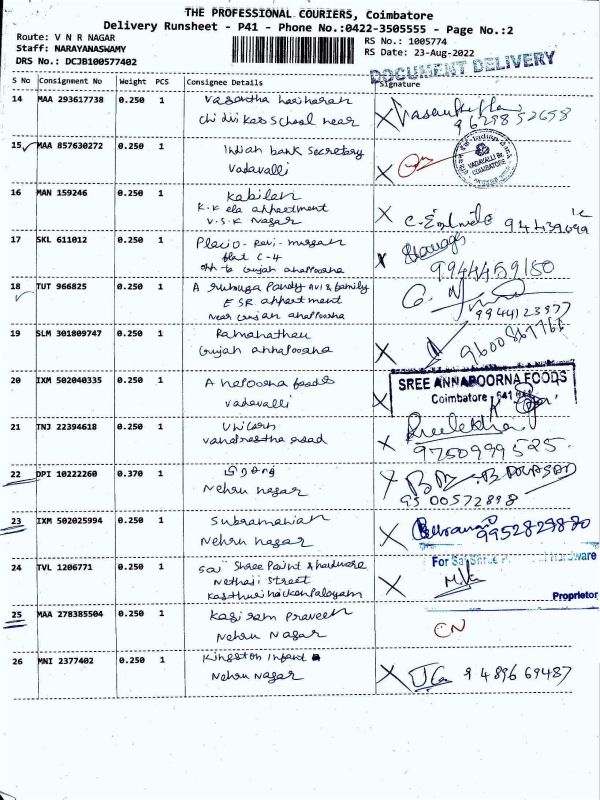 THE PROFESSIONAL COURIERS, Coimbatore
Delivery Runsheet - P41 - Phone No.:0422-3505555 - Page No.:2
Route: V N R NAGAR
RS No.: 1005774
Staff: NARAYANASWAMY
RS Date: 23-Aug-2022
DRS No.: DCJB100577402
DOCUMENT DELIVERY
S No Consignment No Weight PCS Consignee Details Signature
14 MAA 293617738 0.250 1 Vasantha hariharan
Chidikas School near
9629852698
15 MAA 857630272 0.250 1 Indian bank Secretary
Vadavalli
VADAVALLI Br.
COIMBATORE
16 MAN 159246 0.250 1 Kabilan
K.K ela appartment
V.S.K Nagar
17 SKL 611012 0.250 1
flat C-4
9944459150
18 TUT 966825 0.250 1 A Pandy AVI & family
E SR appartment
Near annapoorna
9944123977
19 SLM 301809747 0.250 1 Ramanathan
annapoorna
20 IXM 502040335 0.250 1 Annapoorna foods
Vadavalli
SREE ANNAPOORNA FOODS
Coimbatore
21 TNJ 22394618 0.250 1 Unicorn
road
Sreelekha
9750999525
22 DPI 10222260 0.370 1
Nehru nagar
9500572898
23 IXM 502025994 0.250 1 Subramanian
Nehru nagar
9952829880
24 TVL 1206771 0.250 1 Sai Shree Paint & hardware
Nethaji Street
Kasthurinaickanpalayam
For Sai Shree P Hardware
Proprietor
25 MAA 278385504 0.250 1 Kasiram Praveen
Nehru Nagar
CN
26 MNI 2377402 0.250 1 Kingston Infant
Nehru Nagar
9489669487